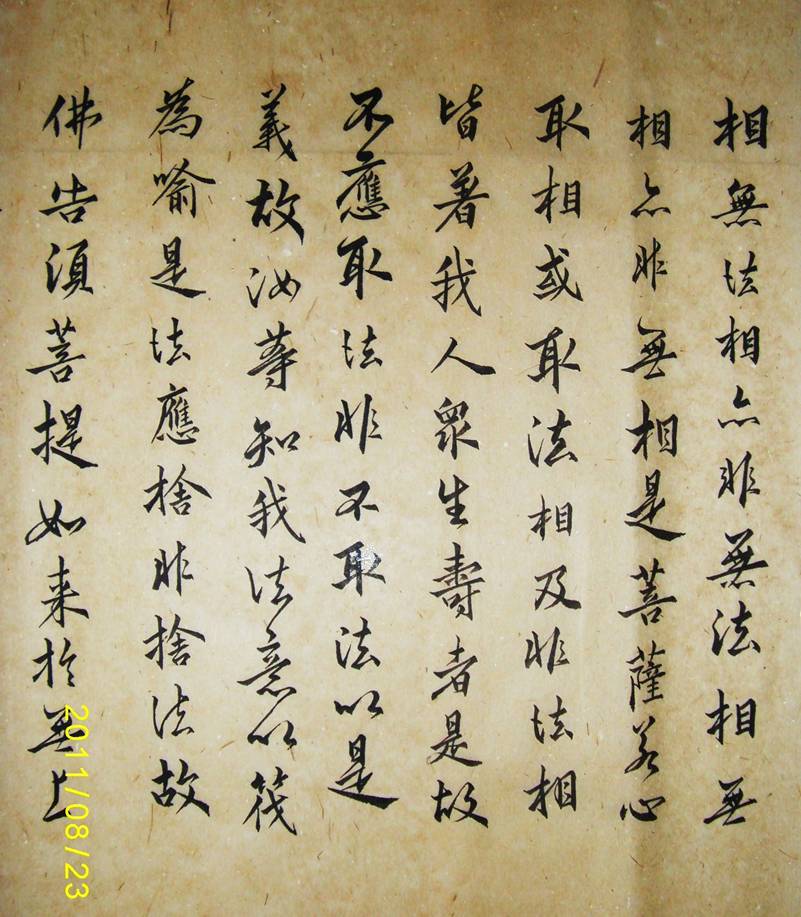 相無法相亦非無法相無
相亦非無相是菩薩若心
取相或取法相及非法相
皆著我人眾生壽者是故
不應取法非不取法以是
義故汝等知我法意以筏
為喻是法應捨非捨法故
佛告須菩提如来於無上
2011/08/23